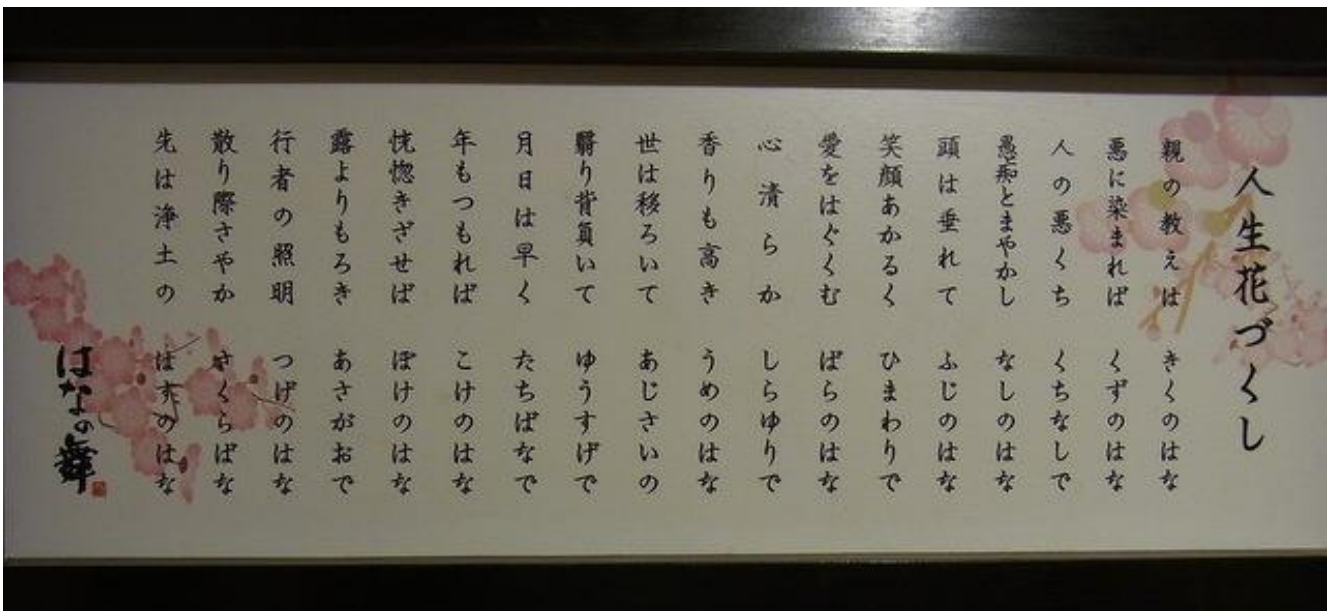 人生花づくし
親の教えは きくのはな
悪に染まれば くずのはな
人の悪くち くちなしで
愚痴とまやかし なしのはな
頭は垂れて ふじのはな
笑顔あかるく ひまわりで
愛をはぐくむ ばらのはな
心清らか しらゆりで
香りも高き うめのはな
世は移ろいて あじさいの
翳り背負いて ゆうすげで
月日は早く たちばなで
年もつもれば こけのはな
恍惚きざせば ぼけのはな
露よりもろき あさがおで
行者の照明 つげのはな
散り際さやか さくらばな
先は浄土の はすのはな
はなの舞